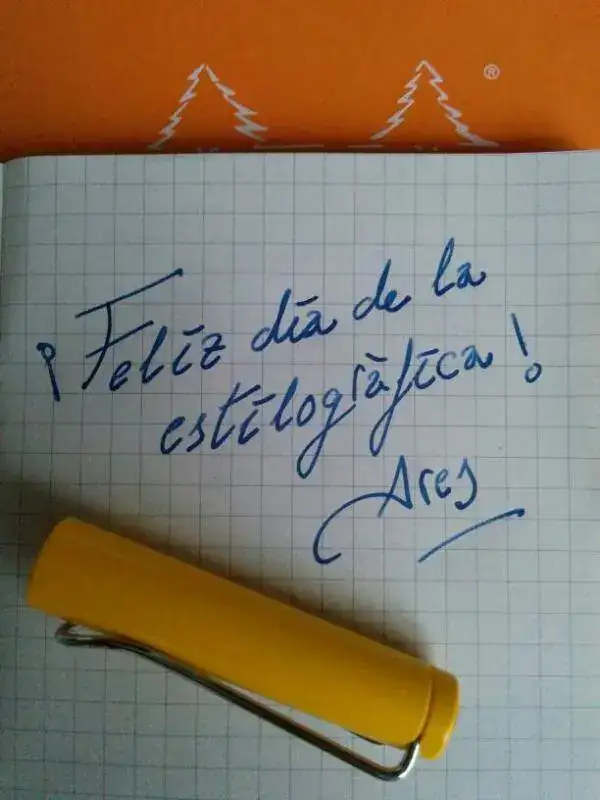 ®
¡Feliz día de la
estilográfica!
Ares